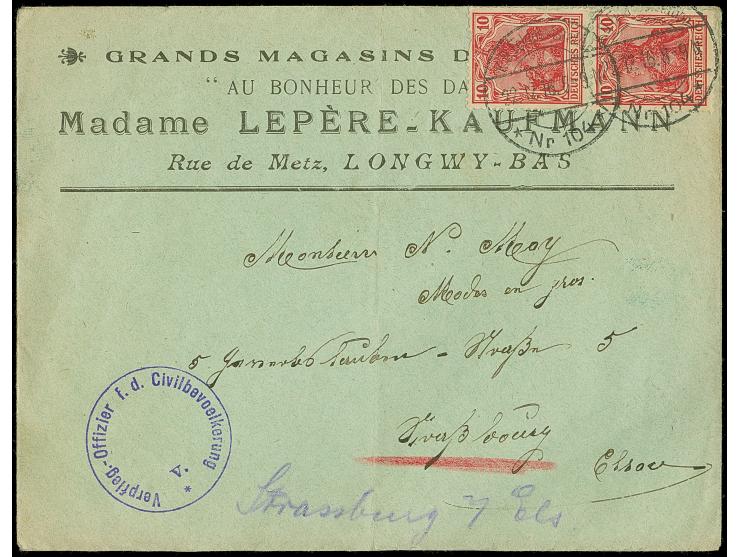 GRANDS MAGASINS D
"AU BONHEUR DES DA
Madame LEPÈRE-KAUFMANN
Rue de Metz, LONGWY-BAS
10 10
DEUTSCHES REICH
10 10
DEUTSCHES REICH
* Nr 104
Nr. 104
Monsieur N. May
Modes en gros.
5 - Straße 5
Straßbourg
Elsass
Verpfleg-Offizier f. d. Civilbevoelkerung
* V.
Strassburg i/ Els